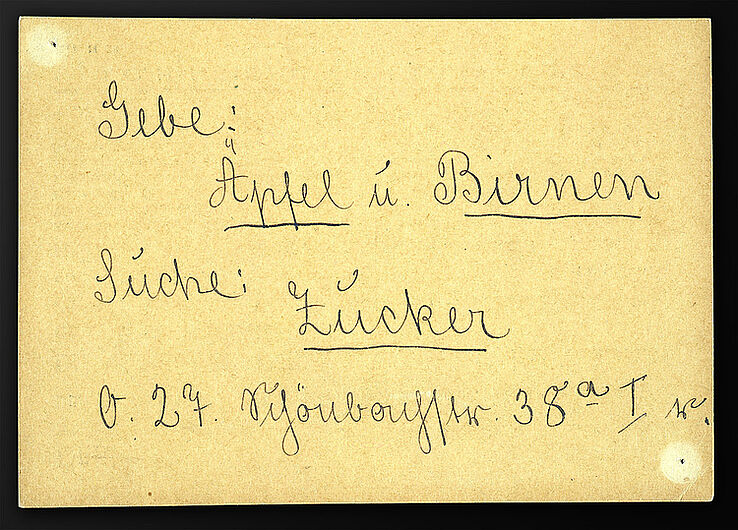 Gebe:
Äpfel u. Birnen
Suche:
Zucker
O. 27. Schönbachstr. 38a I r.